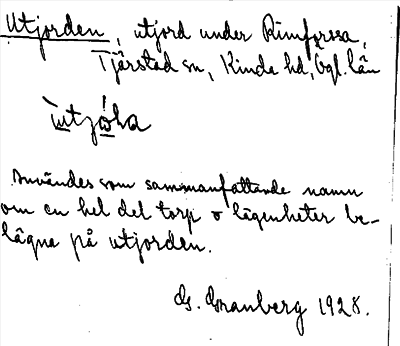 Utjorden, utjord under Rimforssa,
Tjärstad sn, Kinda hd, Ögl. län
Användes som sammanfattande namn
om en hel del torp o lägenheter be-
lägna på utjorden.
G. Granberg 1928.